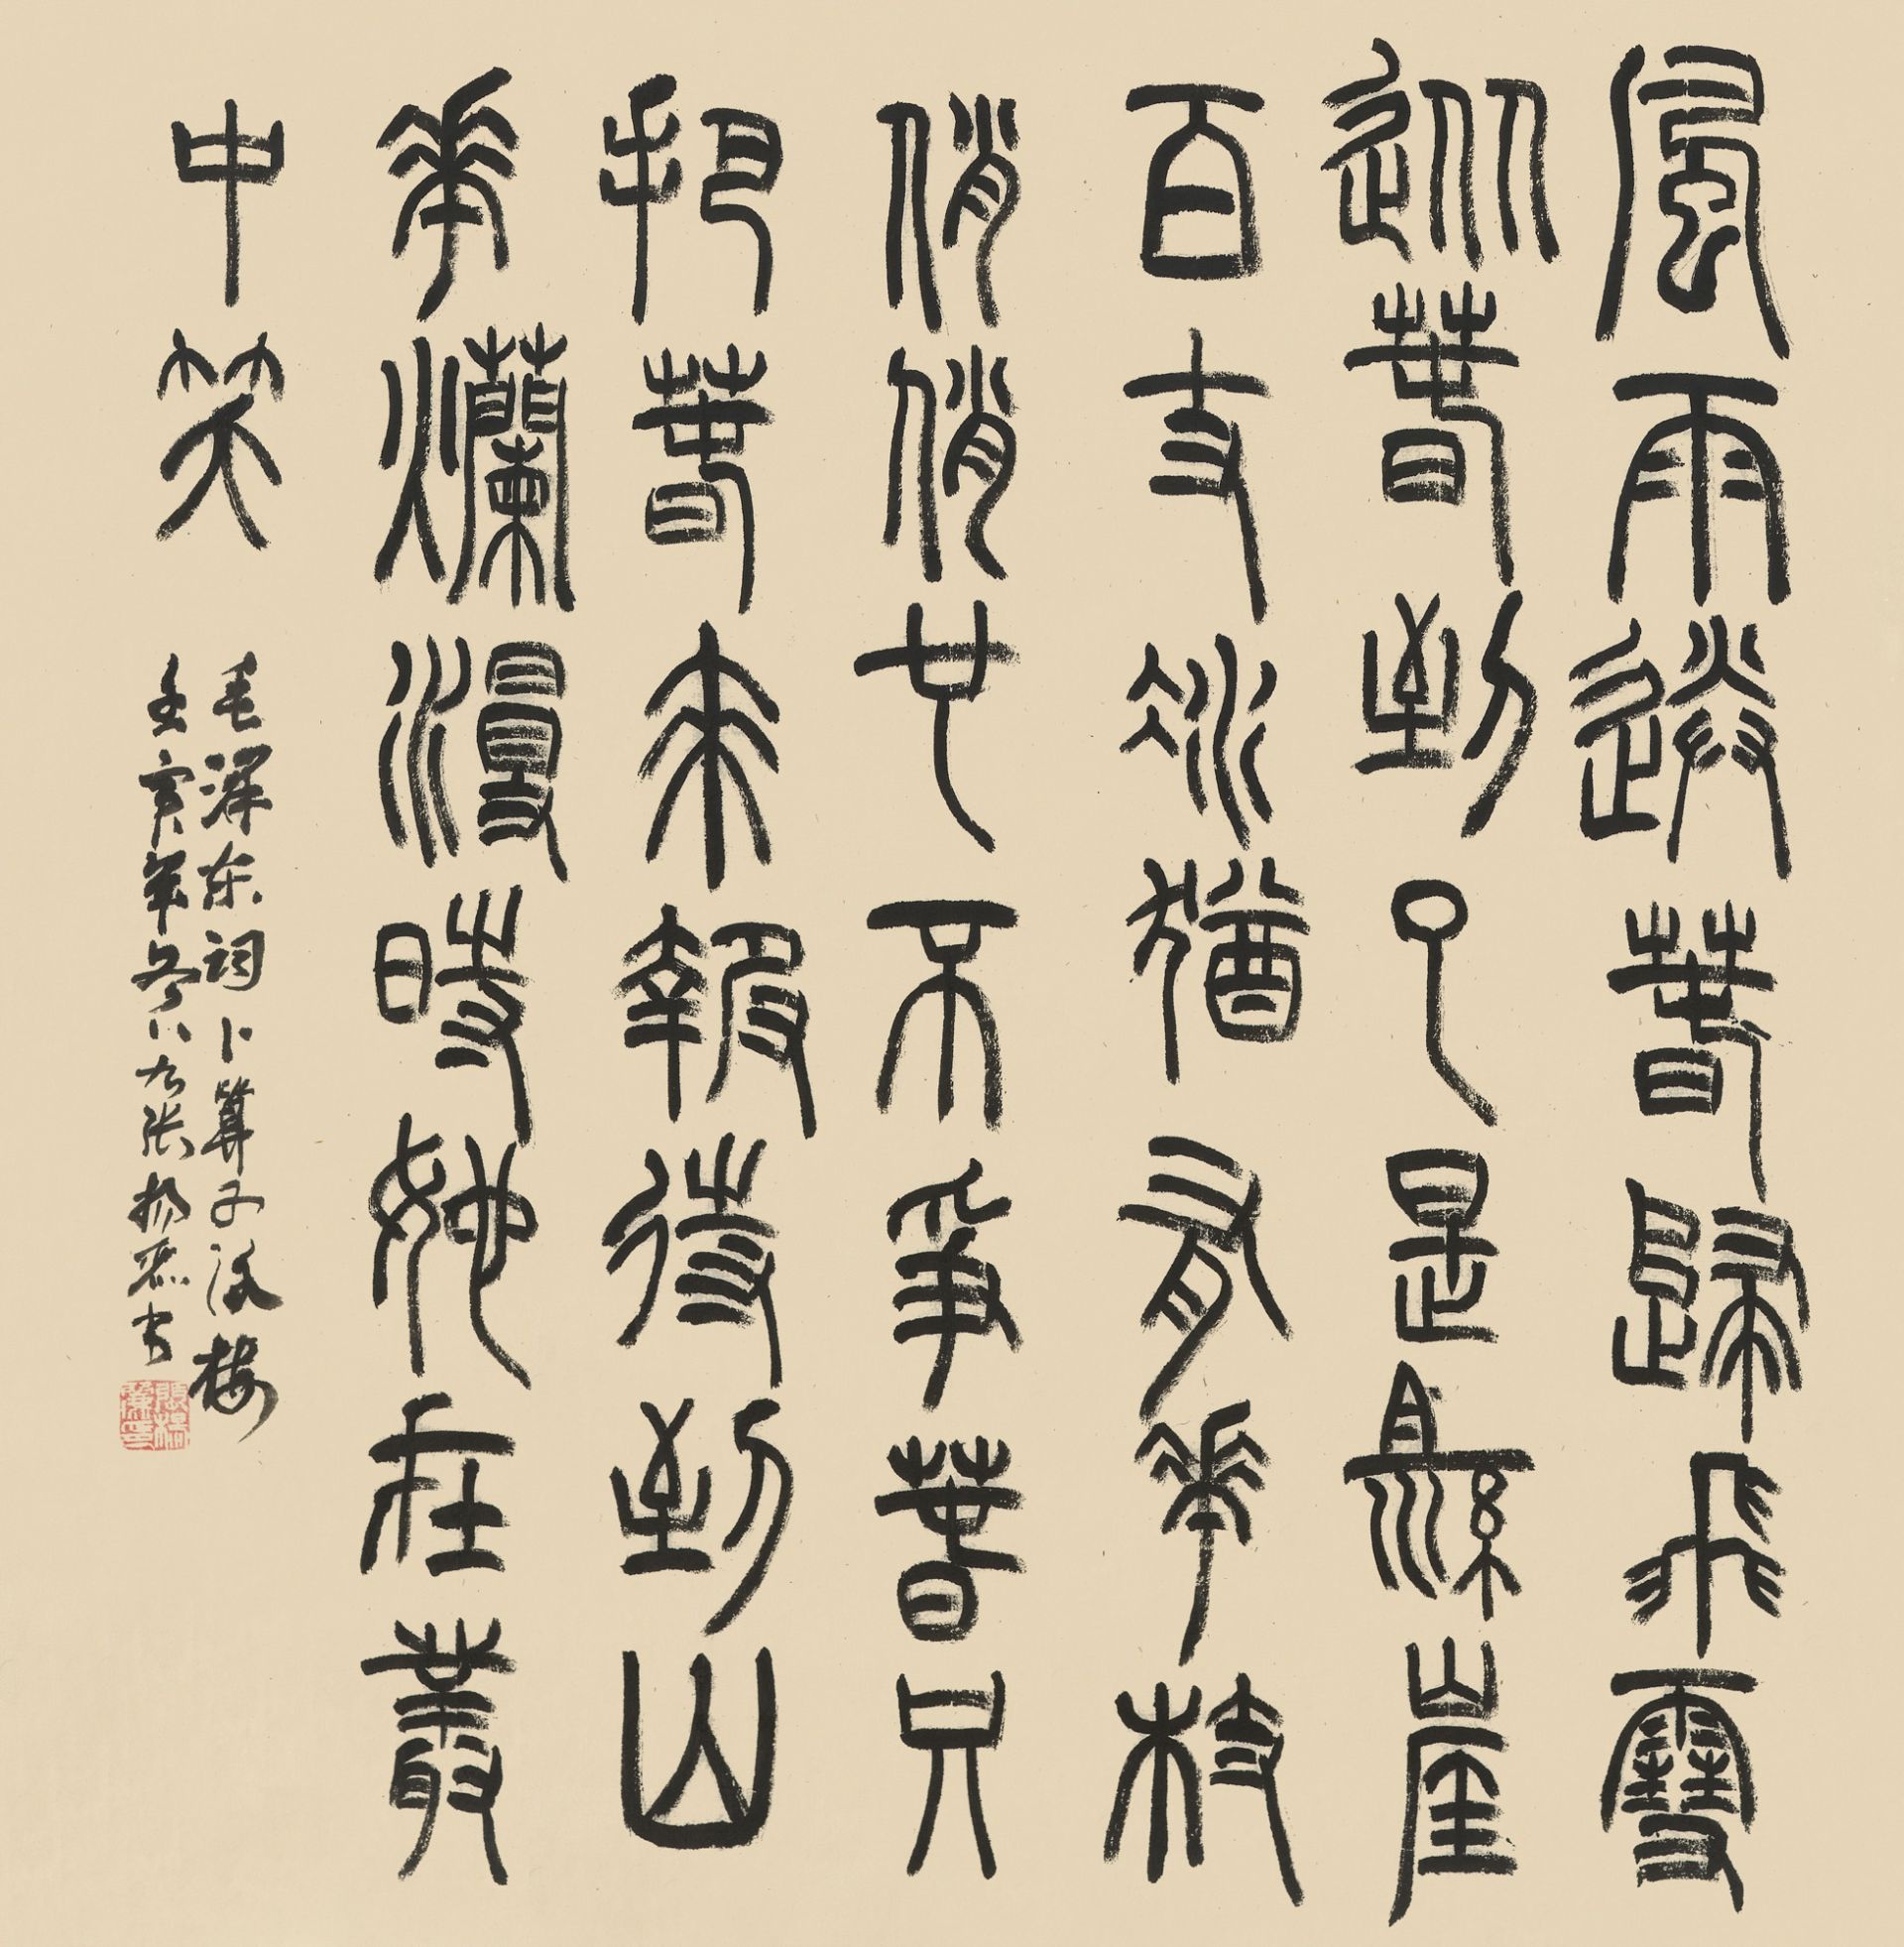 風雨送春歸飛雪
迎春到已是懸崖
百丈冰猶有花枝
俏俏也不爭春只
把春來報待到山
花爛漫時她在叢
中笑
毛澤东词卜算子咏梅
壬寅年冬八九张书